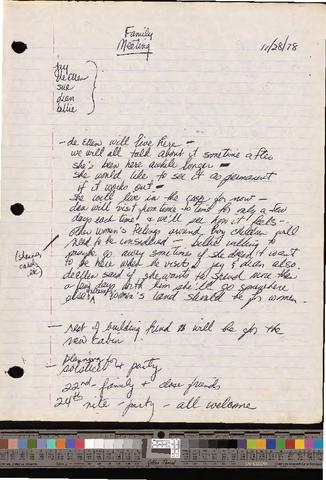 Family
Meeting
11/28/78
joy
de Ellen
sue
dian
billie
- de Ellen will live here -
we will all talk about it sometime after
she's been here awhile longer -
she would like to see it as permanent
if it works out -
She will live in the coop for now -
dan will visit from time to time for only a few
days each time & we'll see how it feels -
other women's feelings around boy children will
need to be considered - billie willing to
maybe go away sometimes if she doesn't want
to be here when he visits, joy & dian also.
de Ellen said if she wants to spend more than
a few days with him she'll go somewhere
else women's land should be for women.
- rest of building fund will be for the
new cabin.
- planning for
solstice + party
22nd - family + close friends
24th nite - party - all welcome